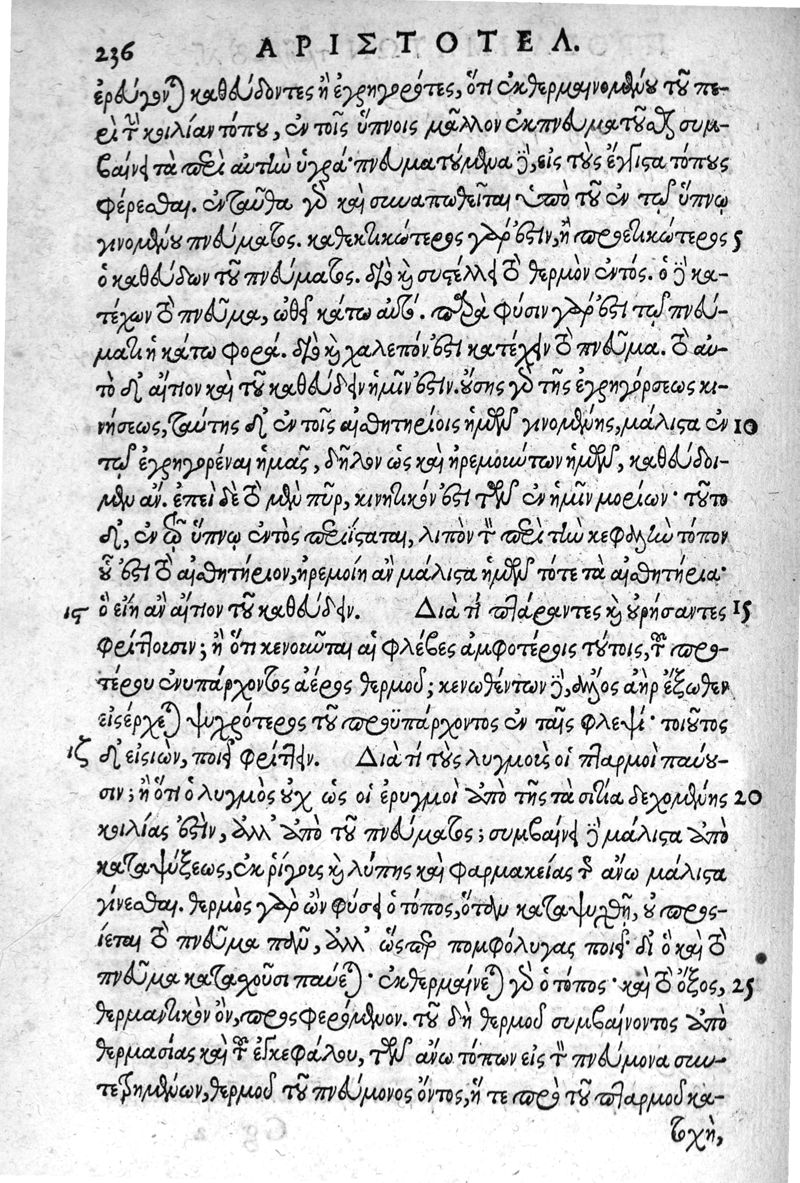 236 ΑΡΙΣΤΟΤΕΛ.
ἐρεύγονται καθεύδοντες ἢ ἐγρηγορότες, ὅτι ἐκθερμαινομένου τοῦ πε-
ρὶ τὴν κοιλίαν τόπου, ἐν τοῖς ὕπνοις μᾶλλον ἐκπνευματοῦσθαι συμ-
βαίνει τὰ περὶ αὐτὴν ὑγρά· πνευματούμενα δὲ, εἰς τοὺς ἔγγιστα τόπους
φέρεσθαι. ἐνταῦθα γὰρ καὶ συναπωθεῖται ὑπὸ τοῦ ἐν τῷ ὕπνῳ
γινομένου πνεύματος. καθεκτικώτερος γάρ ἐστιν, ἢ προετικώτερος 5
ὁ καθεύδων τοῦ πνεύματος. διὸ καὶ συστέλλει τὸ θερμὸν ἐντός. ὁ δὲ κα-
τέχων τὸ πνεῦμα, ὠθεῖ κάτω αὐτό. παρὰ φύσιν γάρ ἐστι τῷ πνεύ-
ματι ἡ κάτω φορά. διὸ καὶ χαλεπόν ἐστι κατέχειν τὸ πνεῦμα. τὸ αὐ-
τὸ δ' αἴτιον καὶ τοῦ καθεύδειν ἡμῖν ἐστιν. οὔσης γὰρ τῆς ἐγρηγόρσεως κι-
νήσεως, ταύτης δ' ἐν τοῖς αἰσθητηρίοις ἡμῶν γινομένης, μάλιστα ἐν 10
τῷ ἐγρηγορέναι ἡμᾶς, δῆλον ὡς καὶ ἠρεμούντων ἡμῶν, καθεύδοι-
μεν ἄν. ἐπεὶ δὲ τὸ μὲν πῦρ, κινητικόν ἐστι τῶν ἐν ἡμῖν μορίων· τοῦτο
δ', ἐν τῷ ὕπνῳ ἐντὸς περιίσταται, λιπὸν τὸν περὶ τὴν κεφαλὴν τόπον
οὗ ἐστι τὸ αἰσθητήριον, ἠρεμοίη ἂν μάλιστα ἡμῶν τότε τὰ αἰσθητήρια·
ιϛ ὃ εἴη ἂν αἴτιον τοῦ καθεύδειν. Διὰ τί πταρέντες καὶ οὐρήσαντες 15
φρίττουσιν; ἢ ὅτι κενοῦνται αἱ φλέβες ἀμφοτέροις τούτοις, τοῦ προ-
τέρου ἐνυπάρχοντος ἀέρος θερμοῦ; κενωθέντων δὲ, ἄλλος ἀὴρ ἔξωθεν
εἰσέρχεται ψυχρότερος τοῦ προϋπάρχοντος ἐν ταῖς φλεψί· τοιοῦτος
ιζ δ' εἰσιὼν, ποιεῖ φρίττειν. Διὰ τί τοὺς λυγμοὺς οἱ πταρμοὶ παύου-
σιν; ἢ ὅτι ὁ λυγμὸς οὐχ ὡς οἱ ἐρυγμοὶ ἀπὸ τῆς τὰ σιτία δεχομένης 20
κοιλίας ἐστὶν, ἀλλ' ἀπὸ τοῦ πνεύματος; συμβαίνει δὲ μάλιστα ἀπὸ
καταψύξεως, ἐκ ῥίγους καὶ λύπης καὶ φαρμακείας τῆς ἄνω μάλιστα
γίνεσθαι. θερμὸς γὰρ ὢν φύσει ὁ τόπος, ὅταν καταψυχθῇ, οὐ προς-
ίεται τὸ πνεῦμα πολὺ, ἀλλ' ὥσπερ πομφόλυγας ποιεῖ· δι' ὃ καὶ τὸ
πνεῦμα κατασχοῦσι παύεται· ἐκθερμαίνεται γὰρ ὁ τόπος· καὶ τὸ ὄξος, 25
θερμαντικὸν ὂν, προςφερόμενον. τοῦ δὴ θερμοῦ συμβαίνοντος ἀπὸ
θερμασίας καὶ τοῦ ἐγκεφάλου, τῶν ἄνω τόπων εἰς τὸν πνεύμονα συν-
τετρημένων, θερμοῦ τοῦ πνεύμονος ὄντος, ἥ τε πρὸ τοῦ πταρμοῦ κα-
τοχὴ,